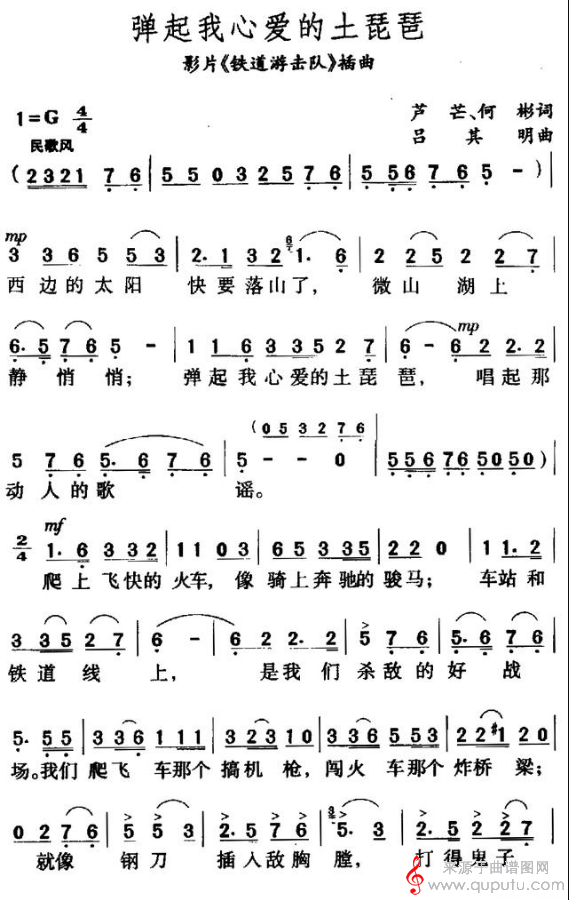 弹起我心爱的土琵琶
影片《铁道游击队》插曲
1=G 4/4
芦芒、何彬词
民歌风
吕其明曲
(2321 76 | 55032576 | 5556 76765 -)
mp
3 36553 | 2.132 6 1.6 | 225227
西边的太阳 快要落山了, 微山湖上
mp
6.5765 - | 11633527 | 6 - 622.2
静悄悄; 弹起我心爱的土琵琶, 唱起那
(053276
5765.676 | 5 - - 0 | 5556 76 5050)
动人的歌谣。
mf
2/4 1.6332 | 1103 | 655335 | 220 | 11.2
爬上飞快的火车, 像骑上奔驰的骏马; 车站和
33527 | 6 - | 622.2 | 3556 | 5.676
铁道线上, 是我们杀敌的好战
5.55 | 336111 | 32313 | 335555 | 22#120
场。我们爬飞车那个搞机枪, 闯火车那个炸桥梁;
0276 | 553 | 2.576 | 3 5. | 2.5227
就像钢刀插入敌胸膛, 打得鬼子
来源于曲谱图网
www.qupu​tu.com